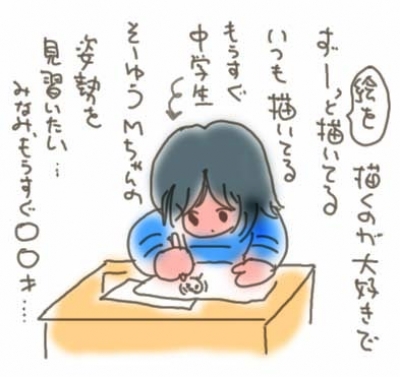 絵を描くのが大好きで
ずーっと描いてる
いつも描いてる
もうすぐ
中学生
そーゆうMちゃんの
姿勢を
見習いたい…
みなみ、もうすぐ〇〇才…